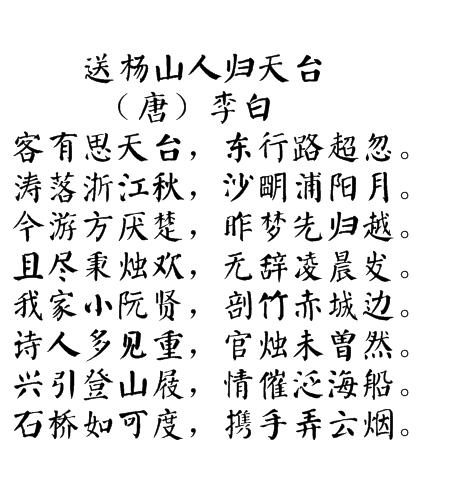 送杨山人归天台
（唐）李白
客有思天台，东行路超忽。
涛落浙江秋，沙明浦阳月。
今游方厌楚，昨梦先归越。
且尽秉烛欢，无辞凌晨发。
我家小阮贤，剖竹赤城边。
诗人多见重，官烛未曾然。
兴引登山屐，情催泛海船。
石桥如可度，携手弄云烟。